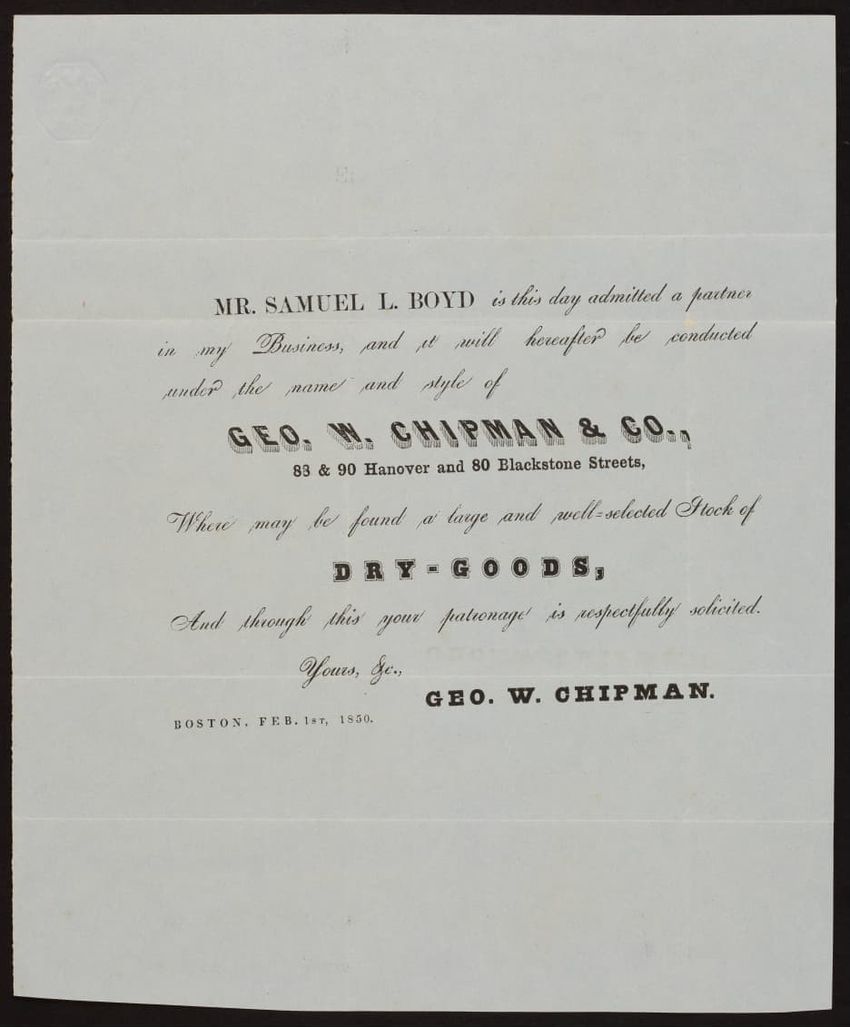 MR. SAMUEL L. BOYD is this day admitted a partner
in my Business, and it will hereafter be conducted
under the name and style of
GEO. W. CHIPMAN & CO.,
88 & 90 Hanover and 80 Blackstone Streets,
Where may be found a large and well=selected Stock of
DRY-GOODS,
And through this your patronage is respectfully solicited.
Yours, &c.,
GEO. W. CHIPMAN.
BOSTON, FEB. 1ST, 1850.